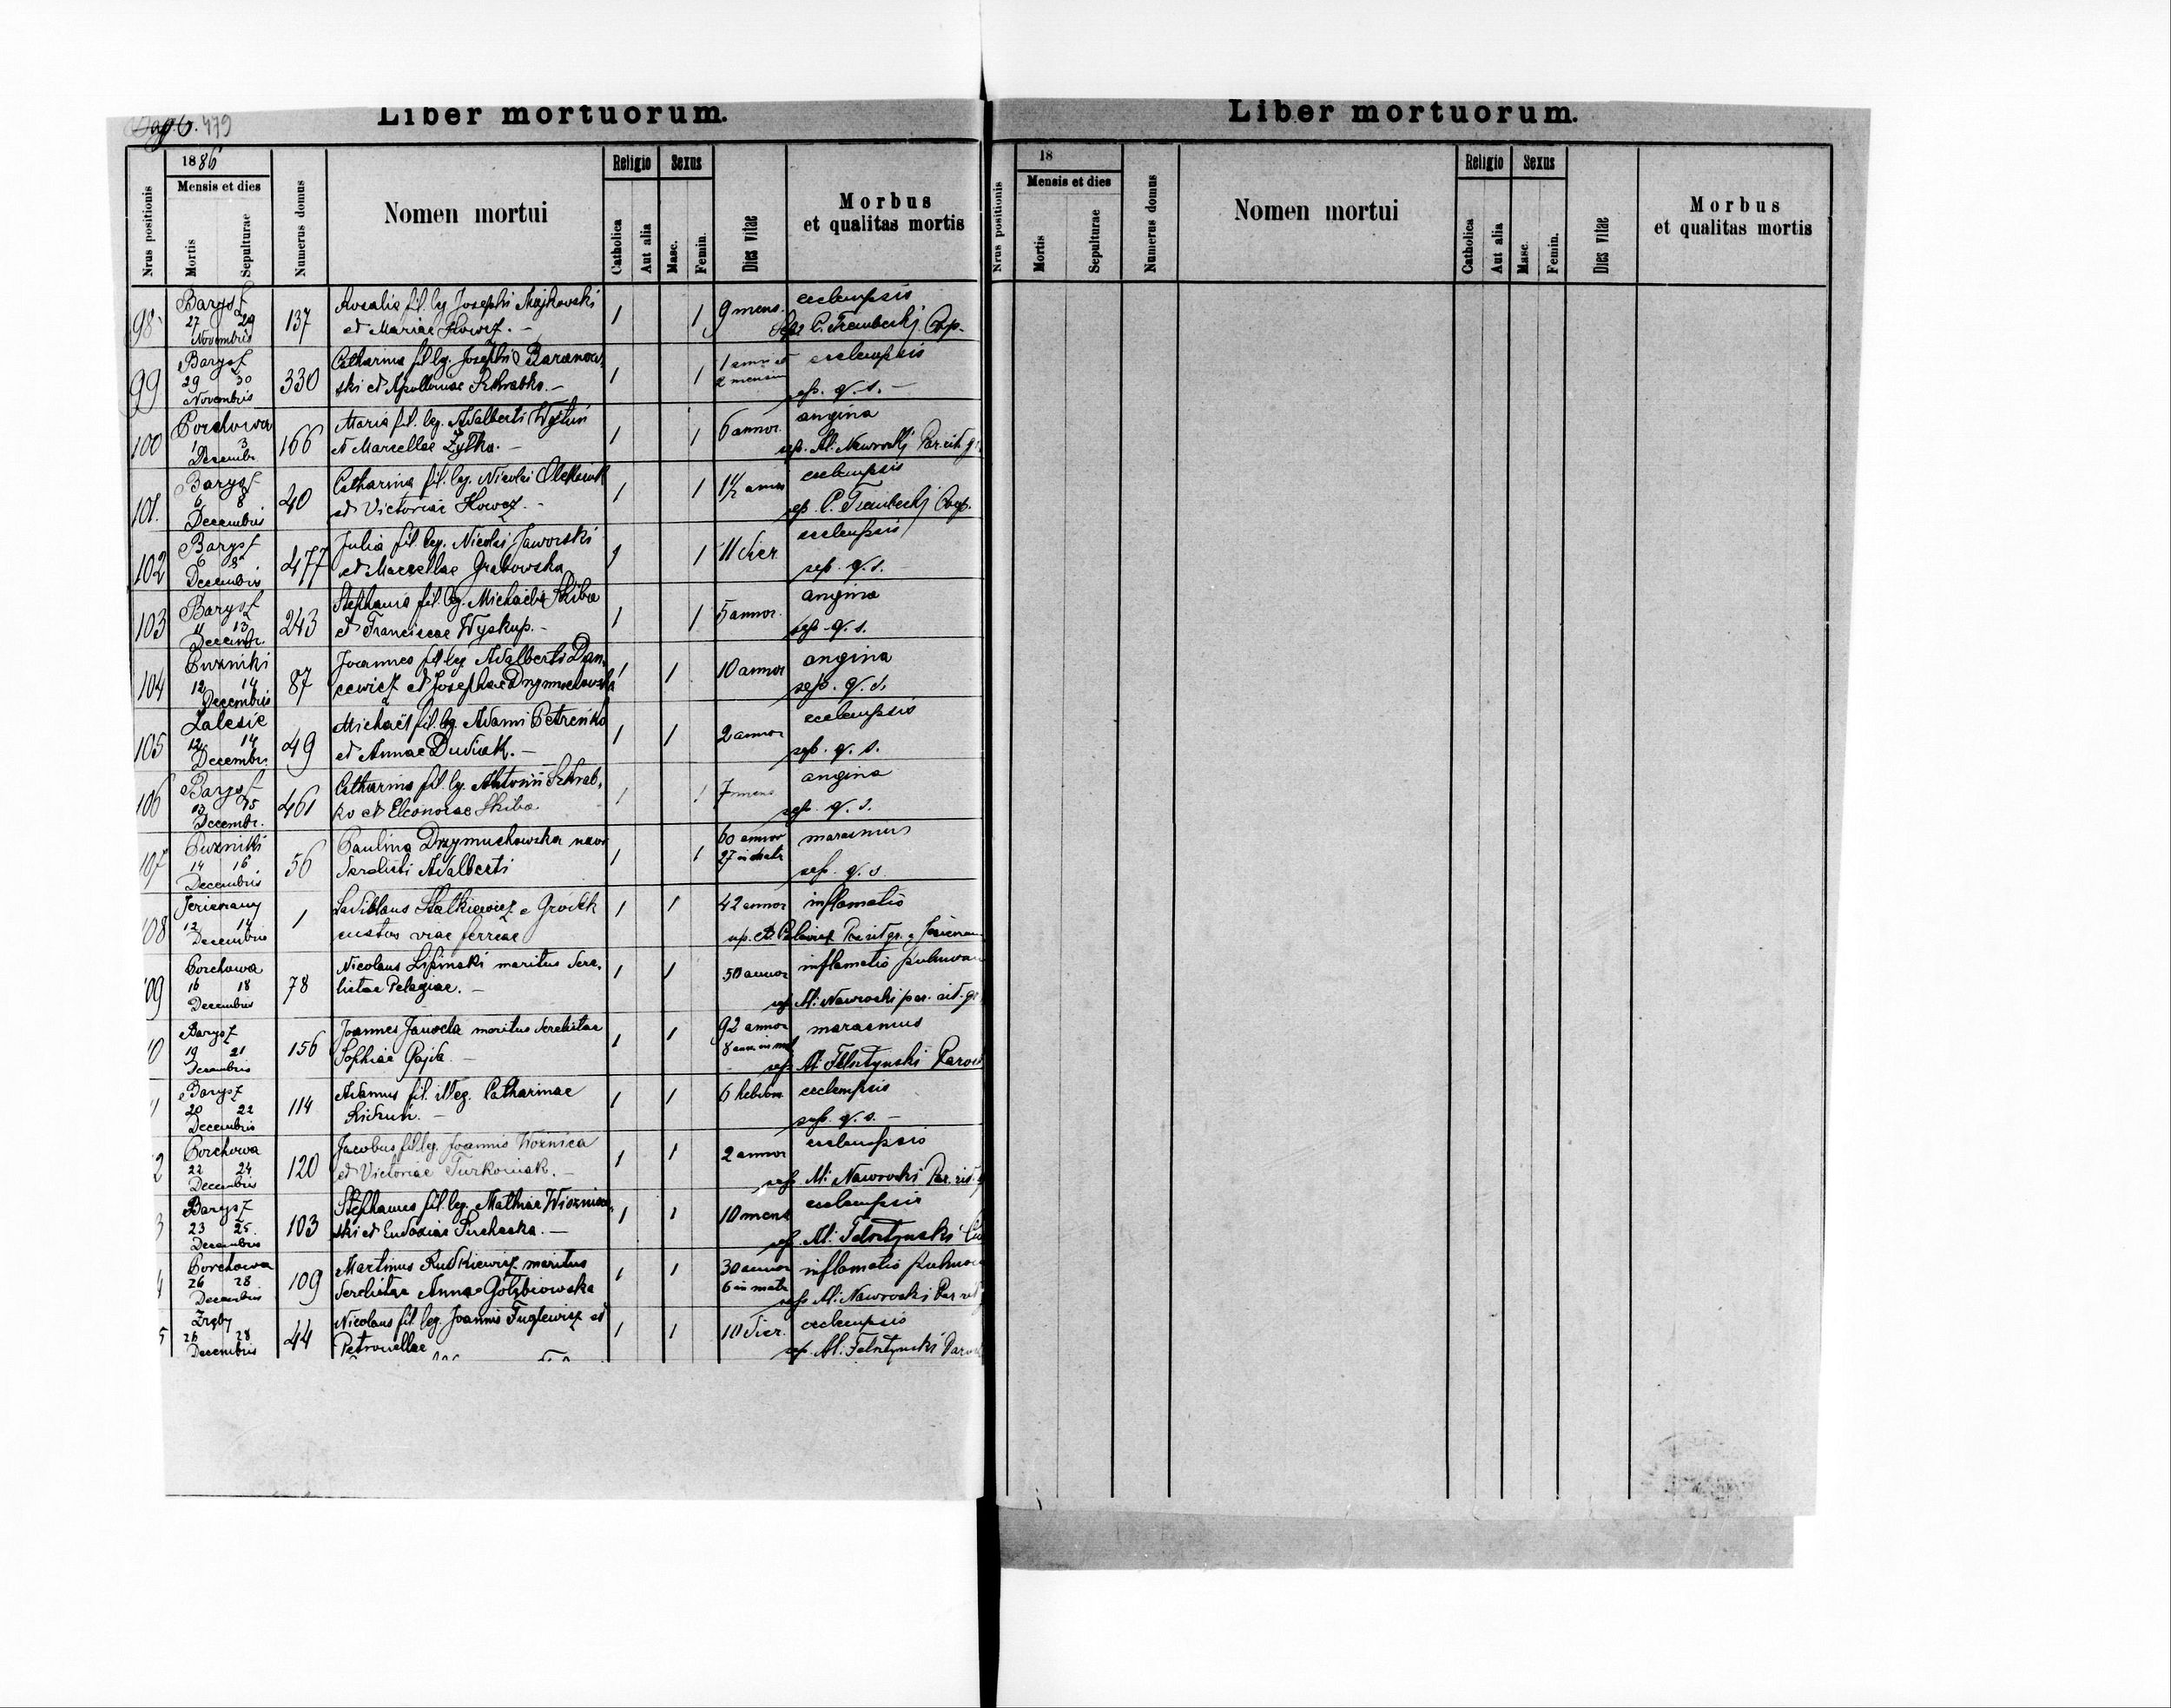 Pag 6. 479
Liber mortuorum.
Nrus positionis
1886
Mensis et dies
Mortis
Sepulturae
Numerus domus
Nomen mortui
Religio
Catholica
Aut alia
Sexus
Masc.
Femin.
Dies vitae
Morbus
et qualitas mortis
98 Barysz 27 29 Novembris 137
Rosalia fil. leg. Josephi Majkowski
et Mariae Howcz. —
1 1 9 mens. ecclempsis
Sep. C. Trembecki Coop.
99 Barysz 29 30 Novembris 330
Catharina fil. leg. Josephi Baranow-
ski et Apolloniae Szkrabka. —
1 1 1 anni et 2 mensium ecclempsis
sep. q. s. —
100 Porchowa 1 3 Decembr. 166
Maria fil. leg. Adalberti
et Marcellae Żyłka. —
1 1 6 annor. angina
sep. Al. Nawrocki Par. rit. gr.
101. Barysz 6 8 Decembris 40
Catharina fil. leg. Nicolai
et Victoriae Howcz. —
1 1 1½ annor ecclempsis
sep. C. Trembecki Coop.
102 Barysz 6 8 Decembris 477
Julia fil. leg. Nicolai Jaworski
et Marcellae Grabowska
1 1 11 dier ecclempsis
sep. q. s.
103 Barysz 11 13 Decembr. 243
Stephania fil. leg. Michaelis Skiba
et Franciscae Wyskup. —
1 1 5 annor. angina
sep. q. s.
104 Puzniki 12 14 Decembris 87
Joannes fil. leg. Adalberti Dan-
cewicz et Josephae Drzymuchowska
1 1 10 annor angina
sep. q. s.
105 Zalesie 12 14 Decembr. 49
Michaël fil. leg. Adami Petreńko
et Annae Dudiak. —
1 1 2 annor ecclempsis
sep. q. s.
106 Barysz 13 15 Decembr. 461
Catharina fil. leg. Antonii Szkrab-
ko et Eleonorae Skiba.
1 1 7 mens angina
sep. q. s.
107 Puzniki 14 16 Decembris 56
Paulina Drzymuchowska uxor
derelicti Adalberti
1 1 60 annor 27 in matr marasmus
sep. q. s.
108 Jezierzany 12 14 Decembris 1
Ladislaus Statkiewicz e Gródek
custos viae ferreae
1 1 42 annor inflamatio
sep.
09 Porchowa 16 18 Decembris 78
Nicolaus Lipinski maritus dere-
lictae Pelagiae. —
1 1 50 annor inflamatio pulmon
sep. Al. Nawrocki par. rit. gr
0 Barysz 19 21 Decembris 156
Joannes maritus derelictae
Sophiae Gajda. —
1 1 92 annor marasmus
sep. Al. Felsztynski Paroch
1 Barysz 20 22 Decembris 114
Adamus fil. illeg. Catharinae
1 1 6 hebdom. ecclempsis
sep. q. s. —
2 Porchowa 22 24 Decembris 120
Jacobus fil. leg. Joannis Woźnica
et Victoriae Turkoniak. —
1 1 2 annor ecclempsis
sep. Al. Nawrocki Par. rit. g
3 Barysz 23 25 Decembris 103
Stephanus fil. leg. Mathiae Wiszniow-
ski et Eudoxiae —
1 1 10 mens ecclempsis
sep. Al. Felsztynski
4 Porchowa 26 28 Decembris 109
Martinus Rudkiewicz maritus
derelictae Annae Gołębiowska
1 1 30 annor 6 in matr inflamatio pulmon
sep. Al. Nawrocki Par rit
5 Zręby 26 28 Decembris 44
Nicolaus fil. leg. Joannis Fuglewicz et
Petronellae
1 1 10 dier. ecclempsis
sep. Al. Felsztynski Paroch
Liber mortuorum.
Nrus positionis
18
Mensis et dies
Mortis
Sepulturae
Numerus domus
Nomen mortui
Religio
Catholica
Aut alia
Sexus
Masc.
Femin.
Dies vitae
Morbus
et qualitas mortis